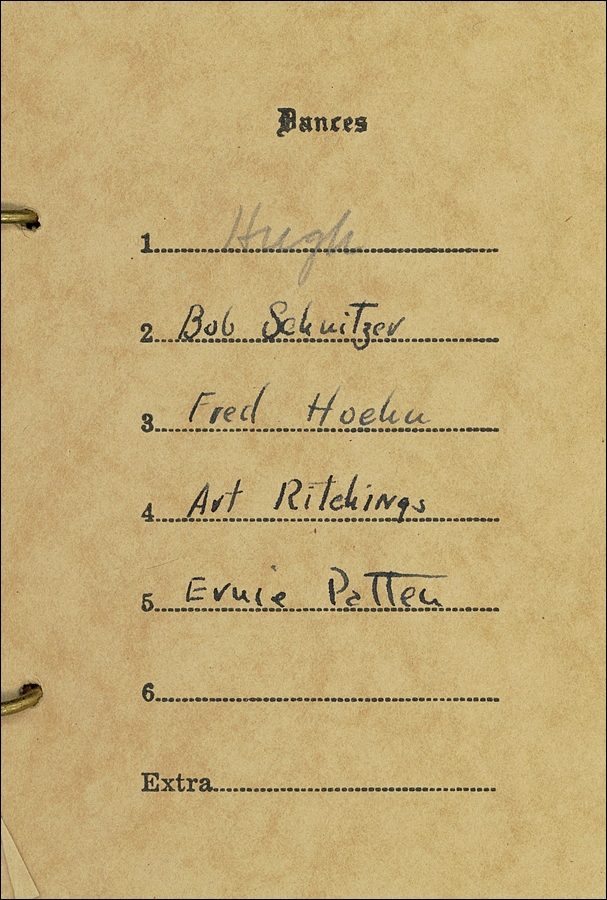 Dances
1 Hugh
2 Bob Schnitzer
3 Fred Hoehn
4 Art Ritchings
5 Ernie Patten
6
Extra